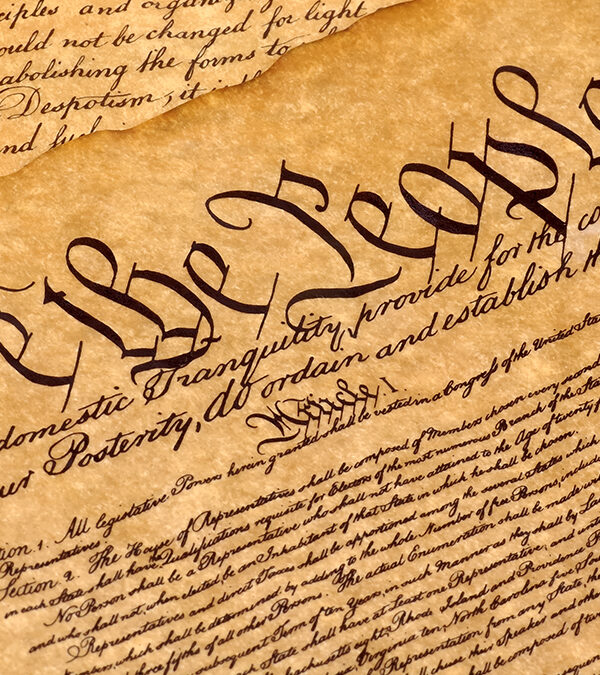 ciples and organiz
ould not be changed for light
abolishing the forms to
Despotism, it is
nd such
e the People
domestic Tranquility, provide for the co
ur Posterity, do ordain and establish th
Article. I.
ion. 1. All legislative Powers herein granted shall be vested in a Congress of the United State
Representatives.
Section. 2. The House of Representatives shall be composed of Members chosen every second
in each State shall have Qualifications requisite for Electors of the most numerous Branch of the Sta
No Person shall be a Representative who shall not have attained to the Age of twenty f
and who shall not, when elected, be an Inhabitant of that State in which he shall be chosen.
Representatives and direct Taxes shall be apportioned among the several States which
mbers, which shall be determined by adding to the whole Number of free Persons, includ
three fifths of all other Persons. The actual Enumeration shall be made wi
subsequent Term of ten Years, in such Manner as they shall by La
each State shall have at Least one Representative; and unti
ssachusetts eight, Rhode Island and Providence P
Virginia ten, North Carolina five, Sou
Representation from any State, th
chuse their Speaker and othe
ll be composed of tw